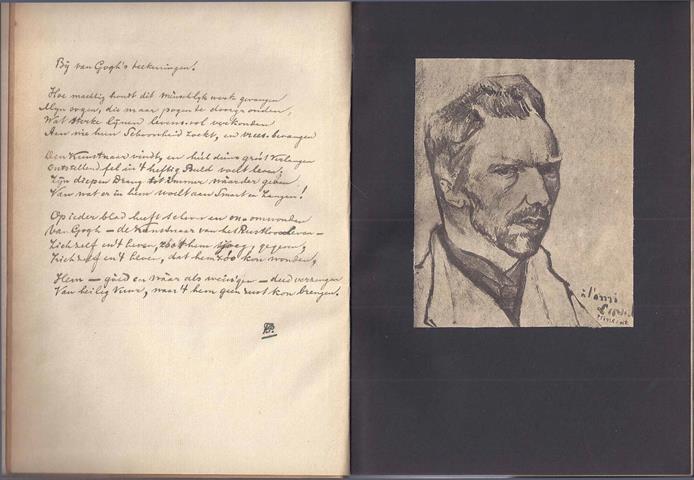 Bij van Gogh's teekeningen!
Hoe machtig houdt dit menschlijk werk gevangen
Mijn oogen, die maar pogen te doorgronden,
Wat sterke lijnen levensvol verkonden
Aan wie hun Schoonheid zoekt, en vrees-bevangen
Den Kunstenaar vindt, en hèel diens groot Verlangen
Ontstellend fel in 't heftig Beeld voelt leven,
Zijn diepen Drang tot immer waarder geven
Van wat er in hem woelt aan Smart en Zangen!
Op ieder blad heeft schoon en on-omwonden
Van Gogh — de Kunstenaar van het Rustloos leven —
Zichzelf en 't leven, zóo 't hem sloeg, gegeven,
Zichzelf en 't leven, dat hem zóo kon wonden,
Hem — goed en wáar als weinigen — deed verzengen
Van heilig Vuur, maar 't hem geen rust kon brengen.
à l'ami
Vincent